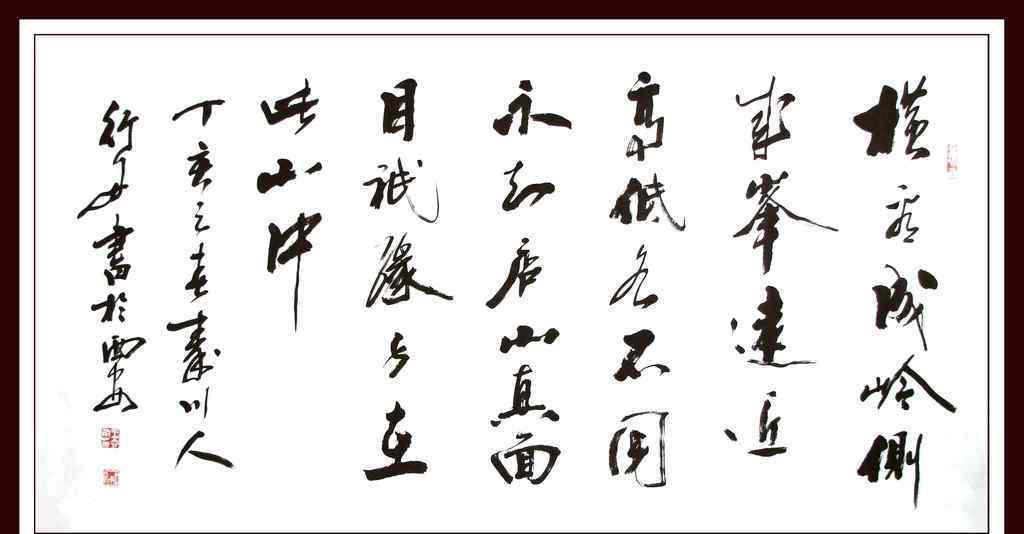 横看成岭侧
成峯遠近
高低各不同
不知庐山真面
目祇缘身在
此山中
丁亥之春寿川人
書於西安